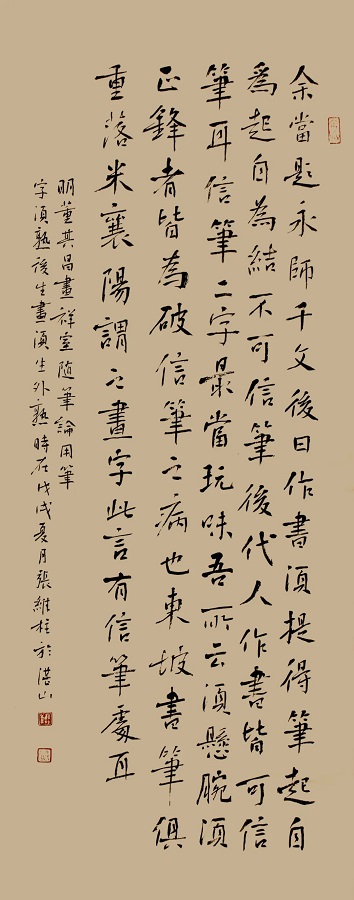 余當題永師千文後曰作書須提得筆起自
為起自為結不可信筆後代人作書皆可信
筆耳信筆二字最當玩味吾所云須懸腕須
正鋒者皆為破信筆之病也東坡書筆俱
重落米襄陽謂之畫字此言有信筆處耳
明董其昌畫禪室隨筆論用筆
字須熟後生畫須生外熟時在戊戌夏月張維柱於洪山